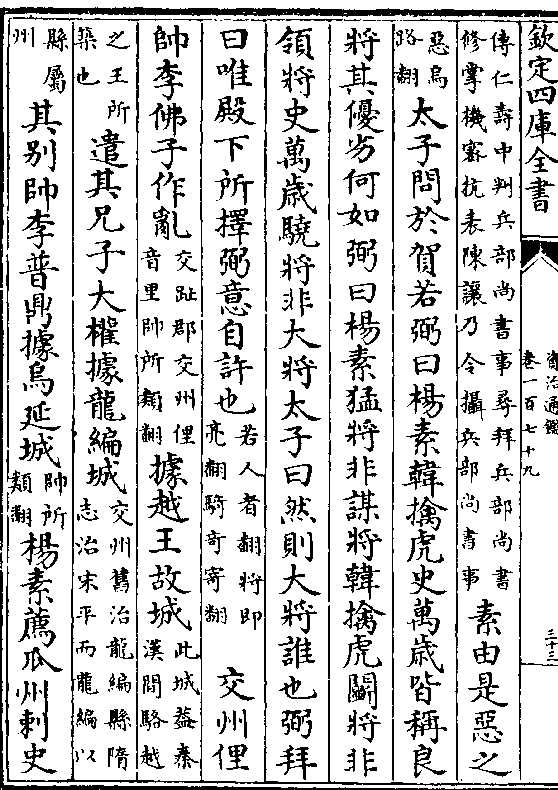 欽定四庫全書
資治通鑑
卷一百七十九
三十三
傳仁壽中判兵部尚書事尋拜兵部尚書
修掌機宻抗表陳讓乃令攝兵部尚書事
素由是惡之
惡烏
路翻
太子問於賀若弼曰楊素韓擒虎史萬歲皆稱良
將其優劣何如弼曰楊素猛將非謀將韓擒虎鬬將非
領將史萬歲驍將非大將太子曰然則大將誰也弼拜
曰唯殿下所擇弼意自許也
若人者翻將即
亮翻騎奇寄翻
交州俚
帥李佛子作亂
交趾郡交州俚
音里帥所類翻
據越王故城
此城葢秦
漢間駱越
之王所
築也
遣其兄子大權據龍編城
交州舊治龍編縣隋
志治宋平而龍編以
縣屬
州
其别帥李普鼎據烏延城
帥所
類翻
楊素薦瓜州刺史